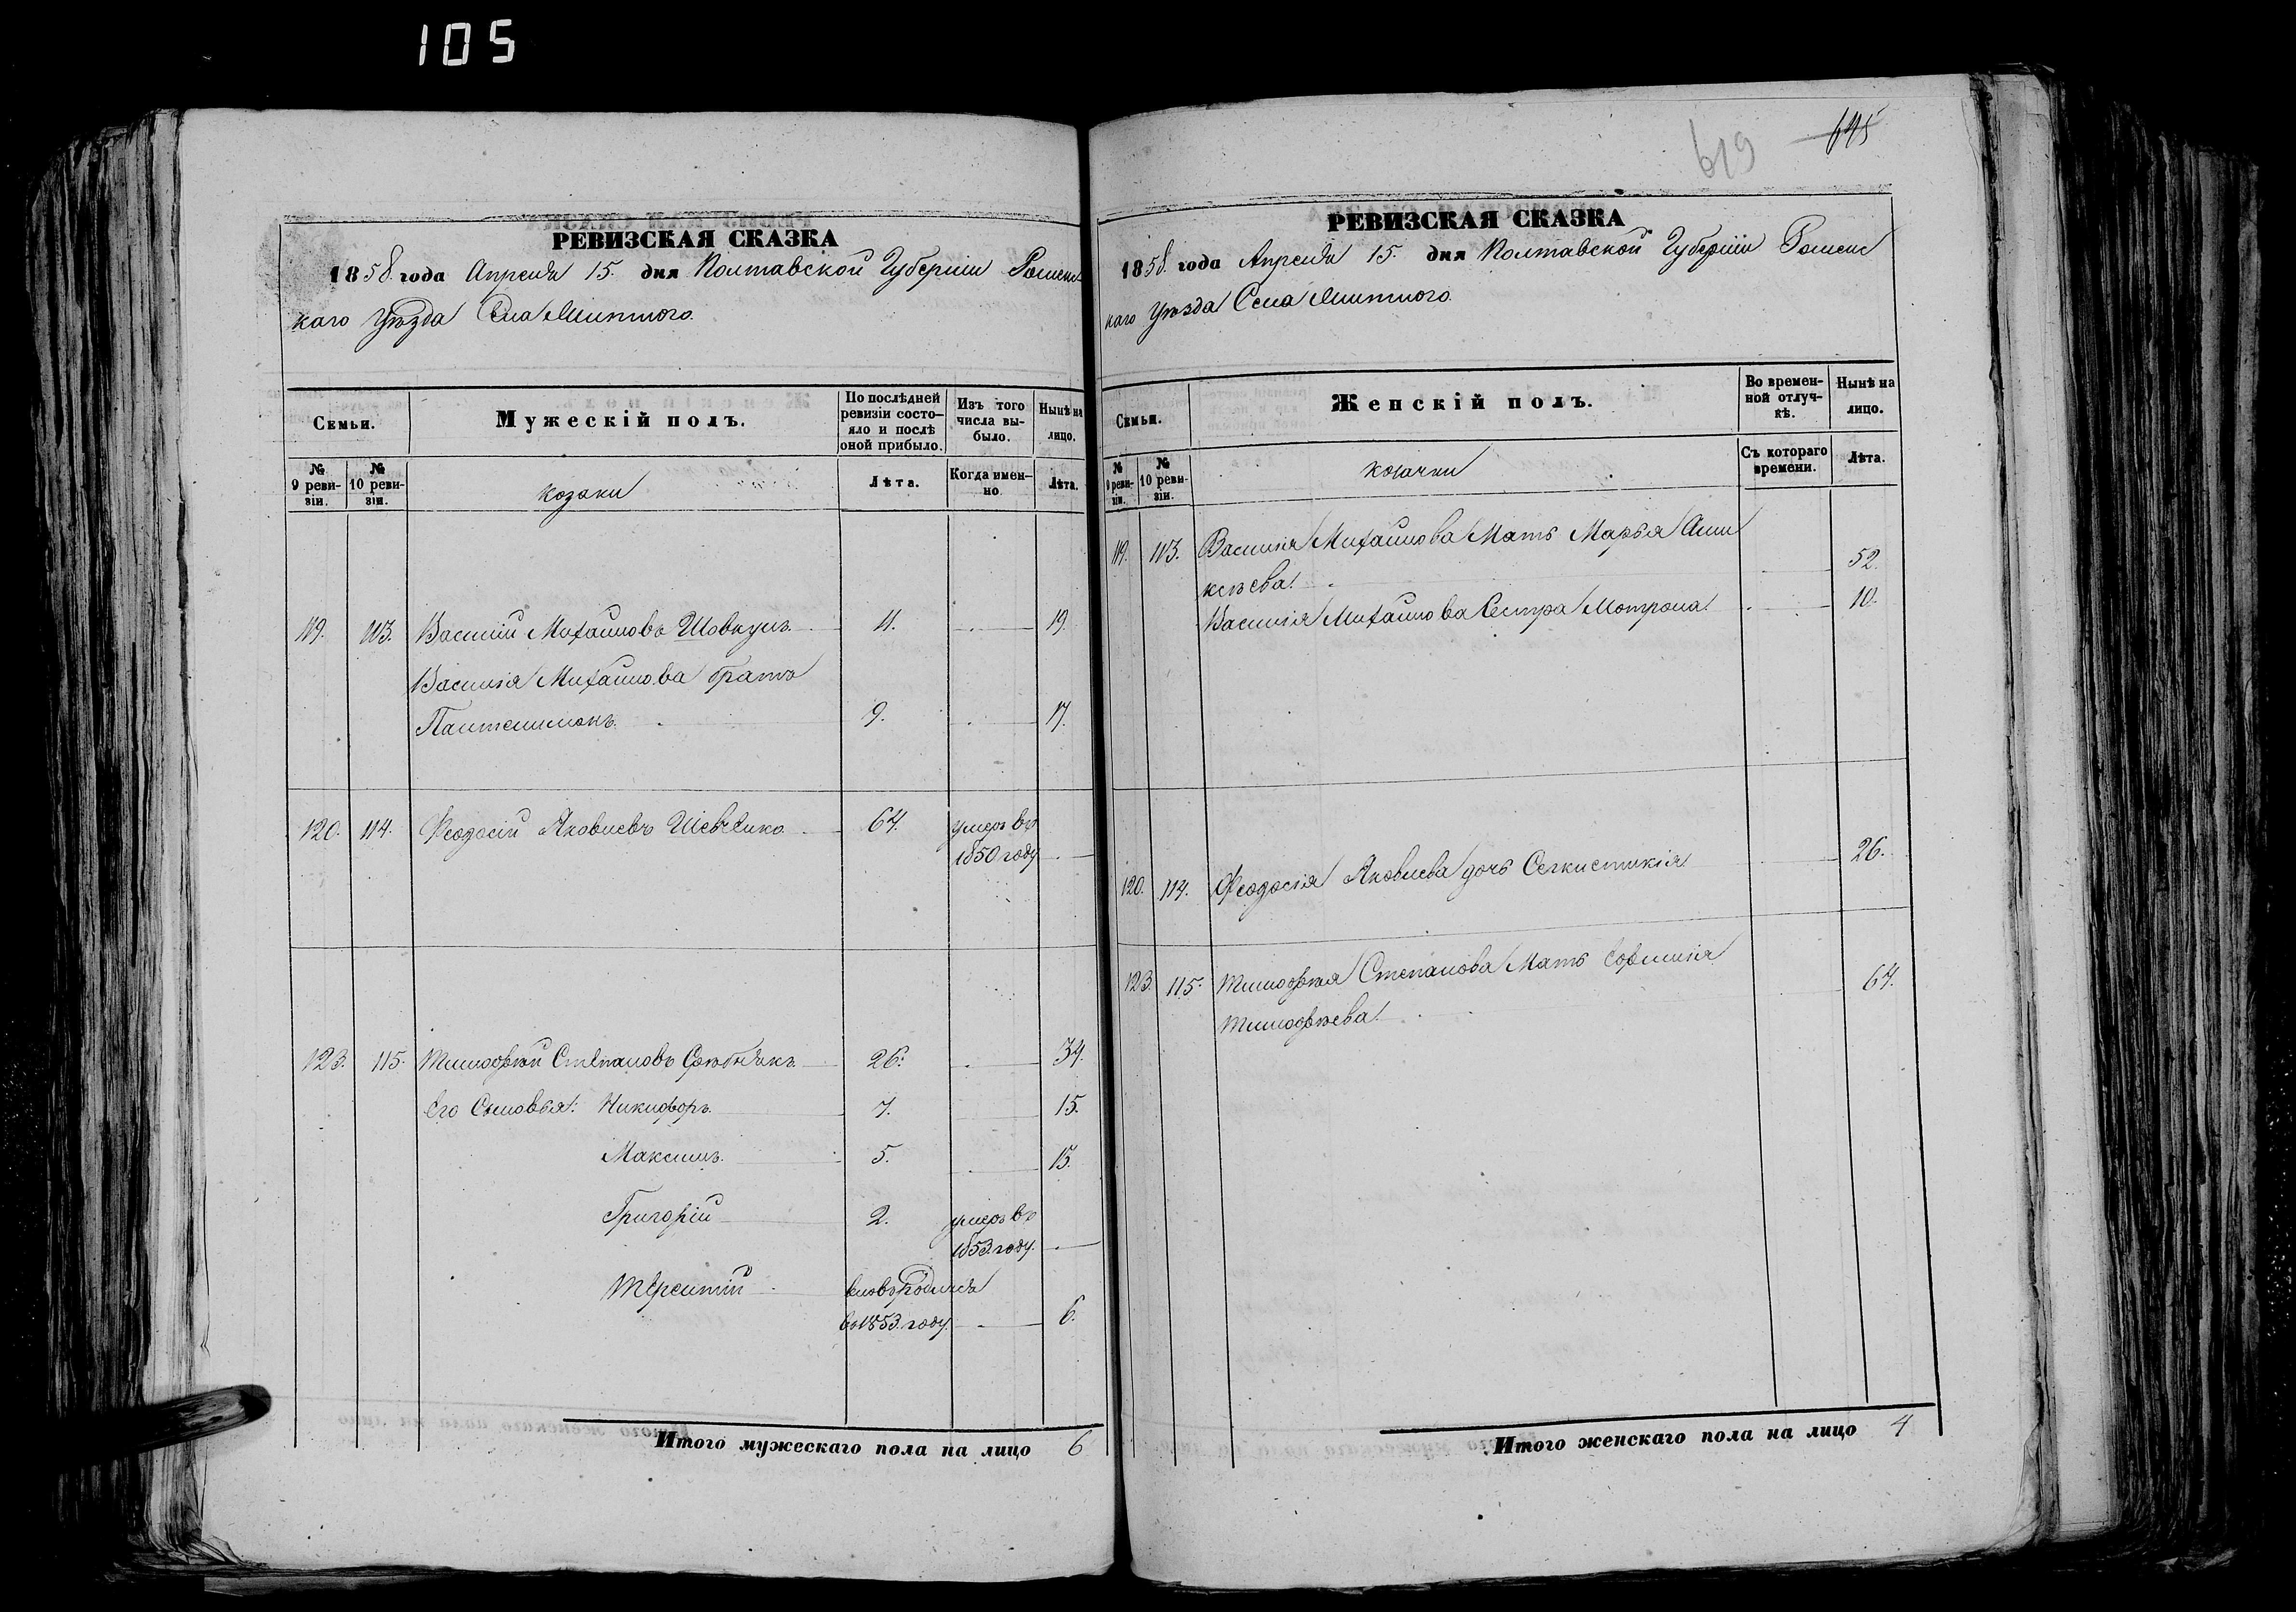 105
РЕВИЗСКАЯ СКАЗКА
1858 года Апреля 15. дня Полтавской Губерніи Роменс
каго Уѣзда Села
Семьи.
Мужескій полъ.
По послѣдней ревизіи состояло и послѣ оной прибыло.
Изъ того числа выбыло.
Нынѣ на лицо.
№ 9 ревизіи.
№ 10 ревизіи.
козаки
Лѣта.
Когда именно
Лѣта.
119. 113. Василій Михайловъ Шовкунъ 11. 19.
Василія Михайлова братъ
Пантелимонъ. 9. 17.
120. 114. Феодосій Яковлевъ Шевченко 64. умеръ въ
1850 году
123. 115. Тимофѣй Степановъ 26. 34.
Его Сыновья: Никифоръ. 7. 15.
Максимъ. 5. 13.
Григорій 2. умеръ въ
1853 году.
Терентій вновь родился
въ 1853 году. 6.
Итого мужескаго пола на лицо 6
619 645
РЕВИЗСКАЯ СКАЗКА
1858. года Апреля 15. дня Полтавской Губерніи Роменс
каго Уѣзда Села
Семьи.
Женскій полъ.
Во временной отлучкѣ.
Нынѣ на лицо.
№ 9 ревизіи.
№ 10 ревизіи.
козачки
Съ котораго времени.
Лѣта.
119. 113. Василія Михайлова Мать Марья Але
ксѣева. 52.
Василія Михайлова Сестра Мотрона. 10.
120. 114. Феодосія Яковлева дочь 26.
123. 115. Тимофѣя Степанова Мать 64.
Тимофѣева.
Итого женскаго пола на лицо 4